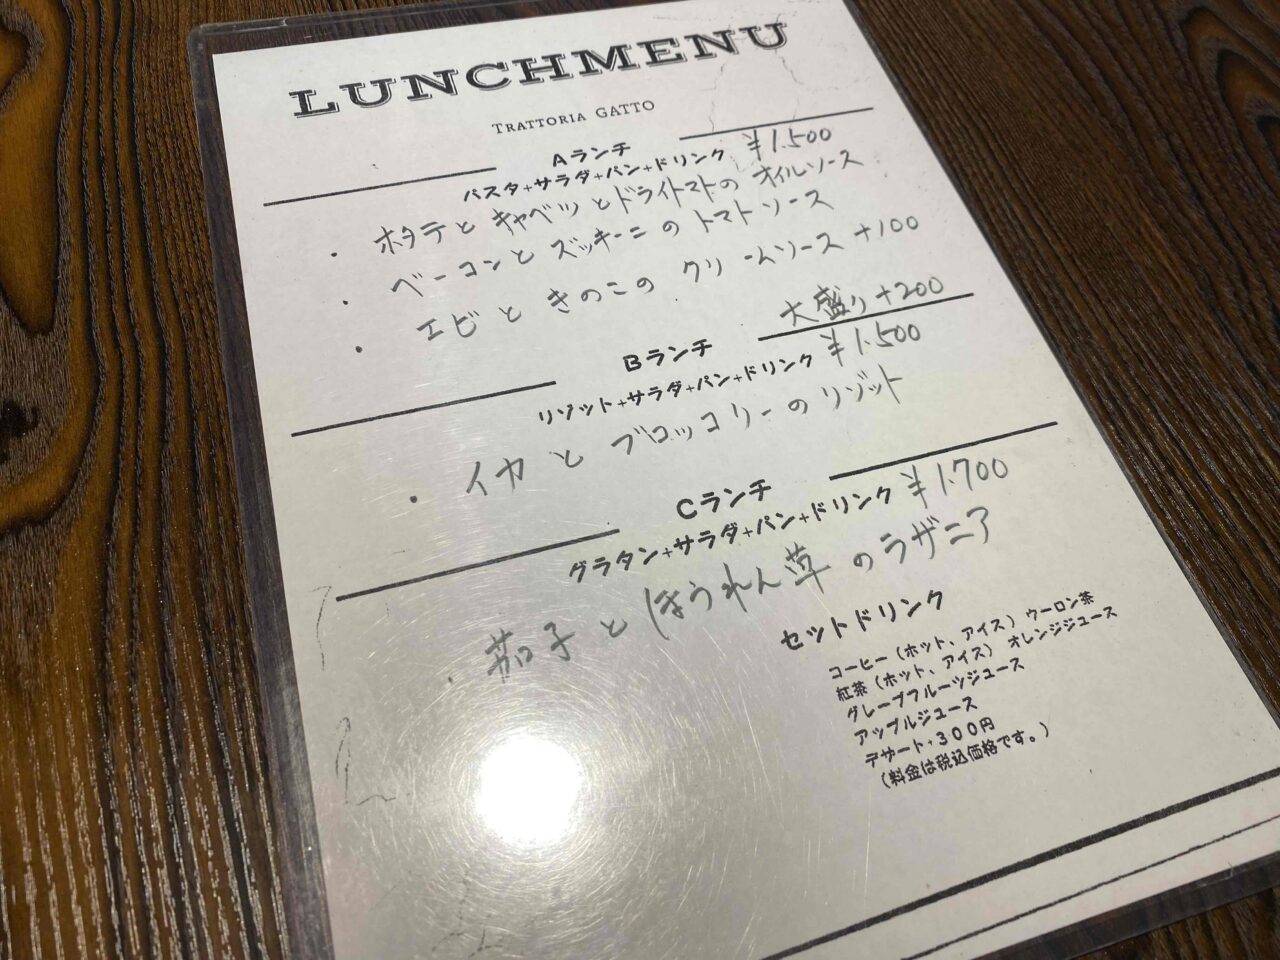 LUNCHMENU
TRATTORIA GATTO
Aランチ
パスタ+サラダ+パン+ドリンク ¥1.500
・ホタテとキャベツとドライトマトのオイルソース
・ベーコンとズッキーニのトマトソース
・エビときのこのクリームソース +100
大盛り+200
Bランチ
リゾット+サラダ+パン+ドリンク ¥1.500
・イカとブロッコリーのリゾット
Cランチ
グラタン+サラダ+パン+ドリンク ¥1.700
・茄子とほうれん草のラザニア
セットドリンク
コーヒー(ホット、アイス) ウーロン茶
紅茶(ホット、アイス) オレンジジュース
グレープフルーツジュース
アップルジュース
デザート・300円
(料金は税込価格です。)